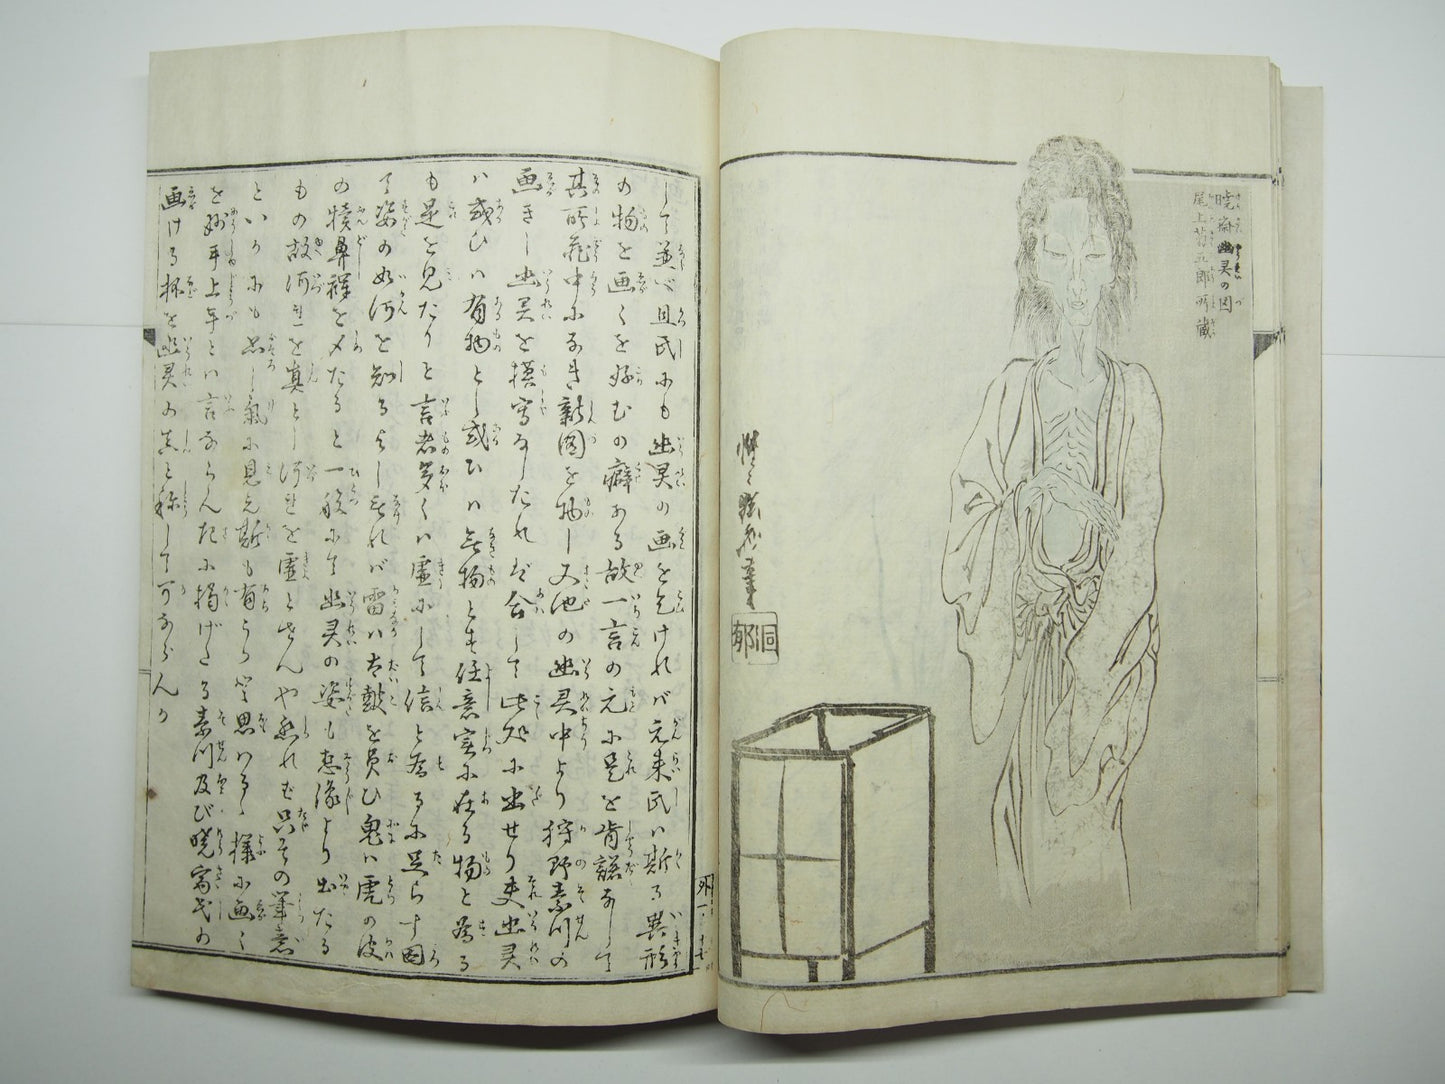 暁斎幽灵の図
尾上菊五郎所蔵
惺々暁斎筆
洞郁
して並べ且氏にも幽灵の画を乞けれバ元来氏ハ斯る異形
の物を画くを好むの癖ある故一言の元に是を肯諾なして
其所蔵中に有き新図を物し又池の幽灵中より狩野素川の
画きし幽灵を模写なしたれバ合して此処に出せり夫幽灵
ハ或ひハ有物とし或ひハ無物とす任意実に在る物と為る
も足を見たりと言者多くハ虚にして信と為るに足ら寸図
て姿の如何を知るよし無れバ雷ハ太鼓を負ひ鬼ハ虎の皮
の犢鼻褌を〆たると一般にて幽灵の姿も想像より出たる
もの故何れを真とし何れを虚とせんや然れども只其の筆意
といかにも恐し気に見え斯も有うらめと思はるゝ様に画く
を妙手上手とハ言ならんたに掲げたる素川及び暁斎氏の
画ける杯を幽灵の真と称して可ならんか
外一